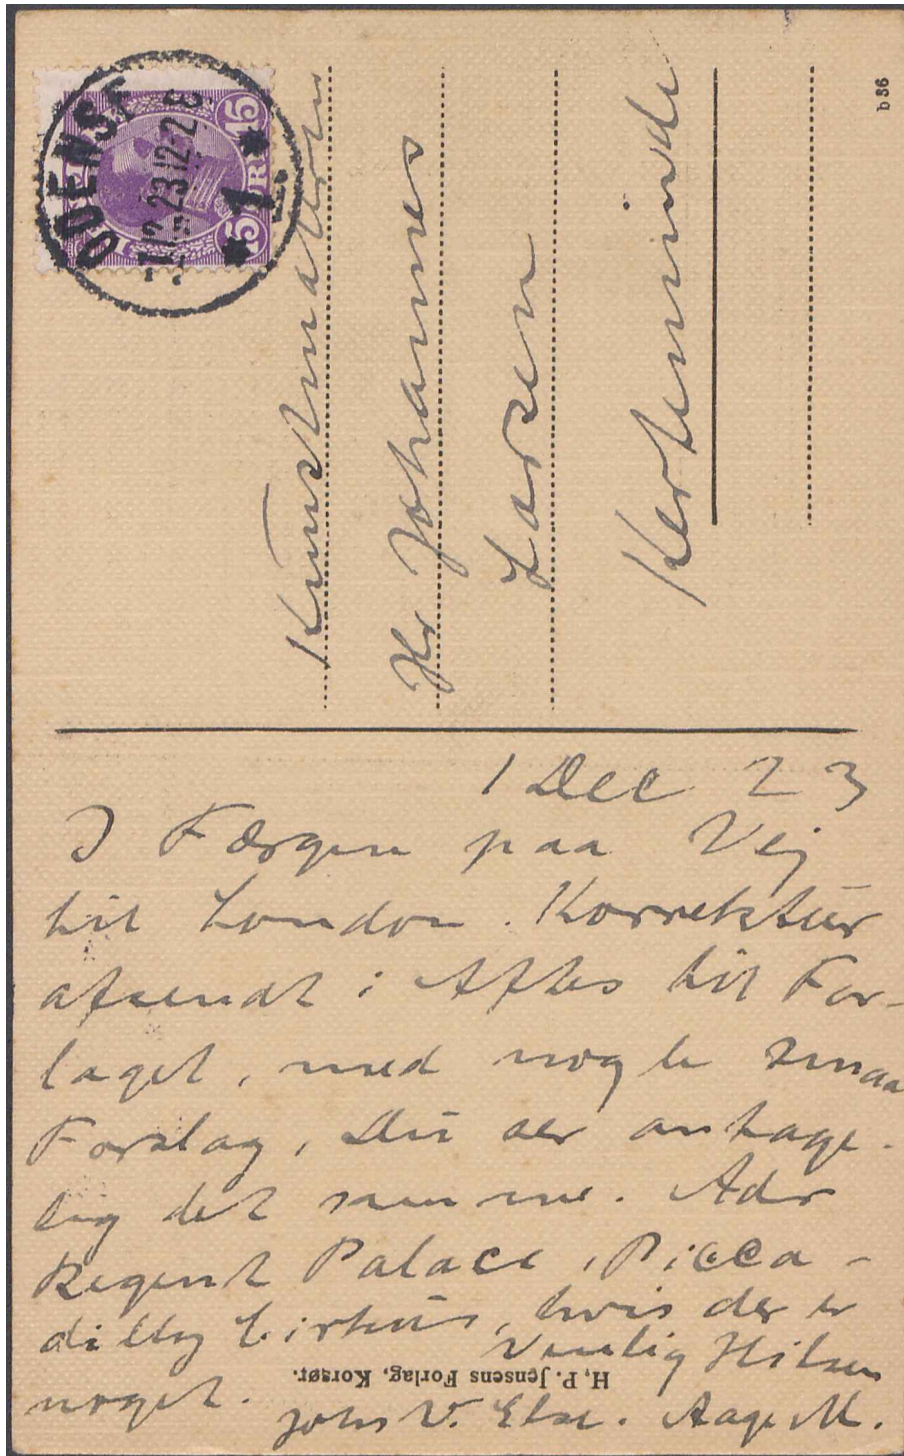 ODENSE
1.12.23.12-2 E
* 1. *
15 15
ØRE
Kunstmaleren
Hr Johannes
Larsen
Kerteminde
b 36
1 Dec 23
I Færgen paa Vej
til London. Korrektur
afsendt i Aftes til For-
laget, med nogle smaa
Forslag, Du ser antage-
lig det samme. Adr
Regent Palace, Picca-
dilly Cirkus, hvis der er
noget. Venlig Hilsen
Johs V. Else. Aage M.
H. P. Jensens Forlag, Korsør.